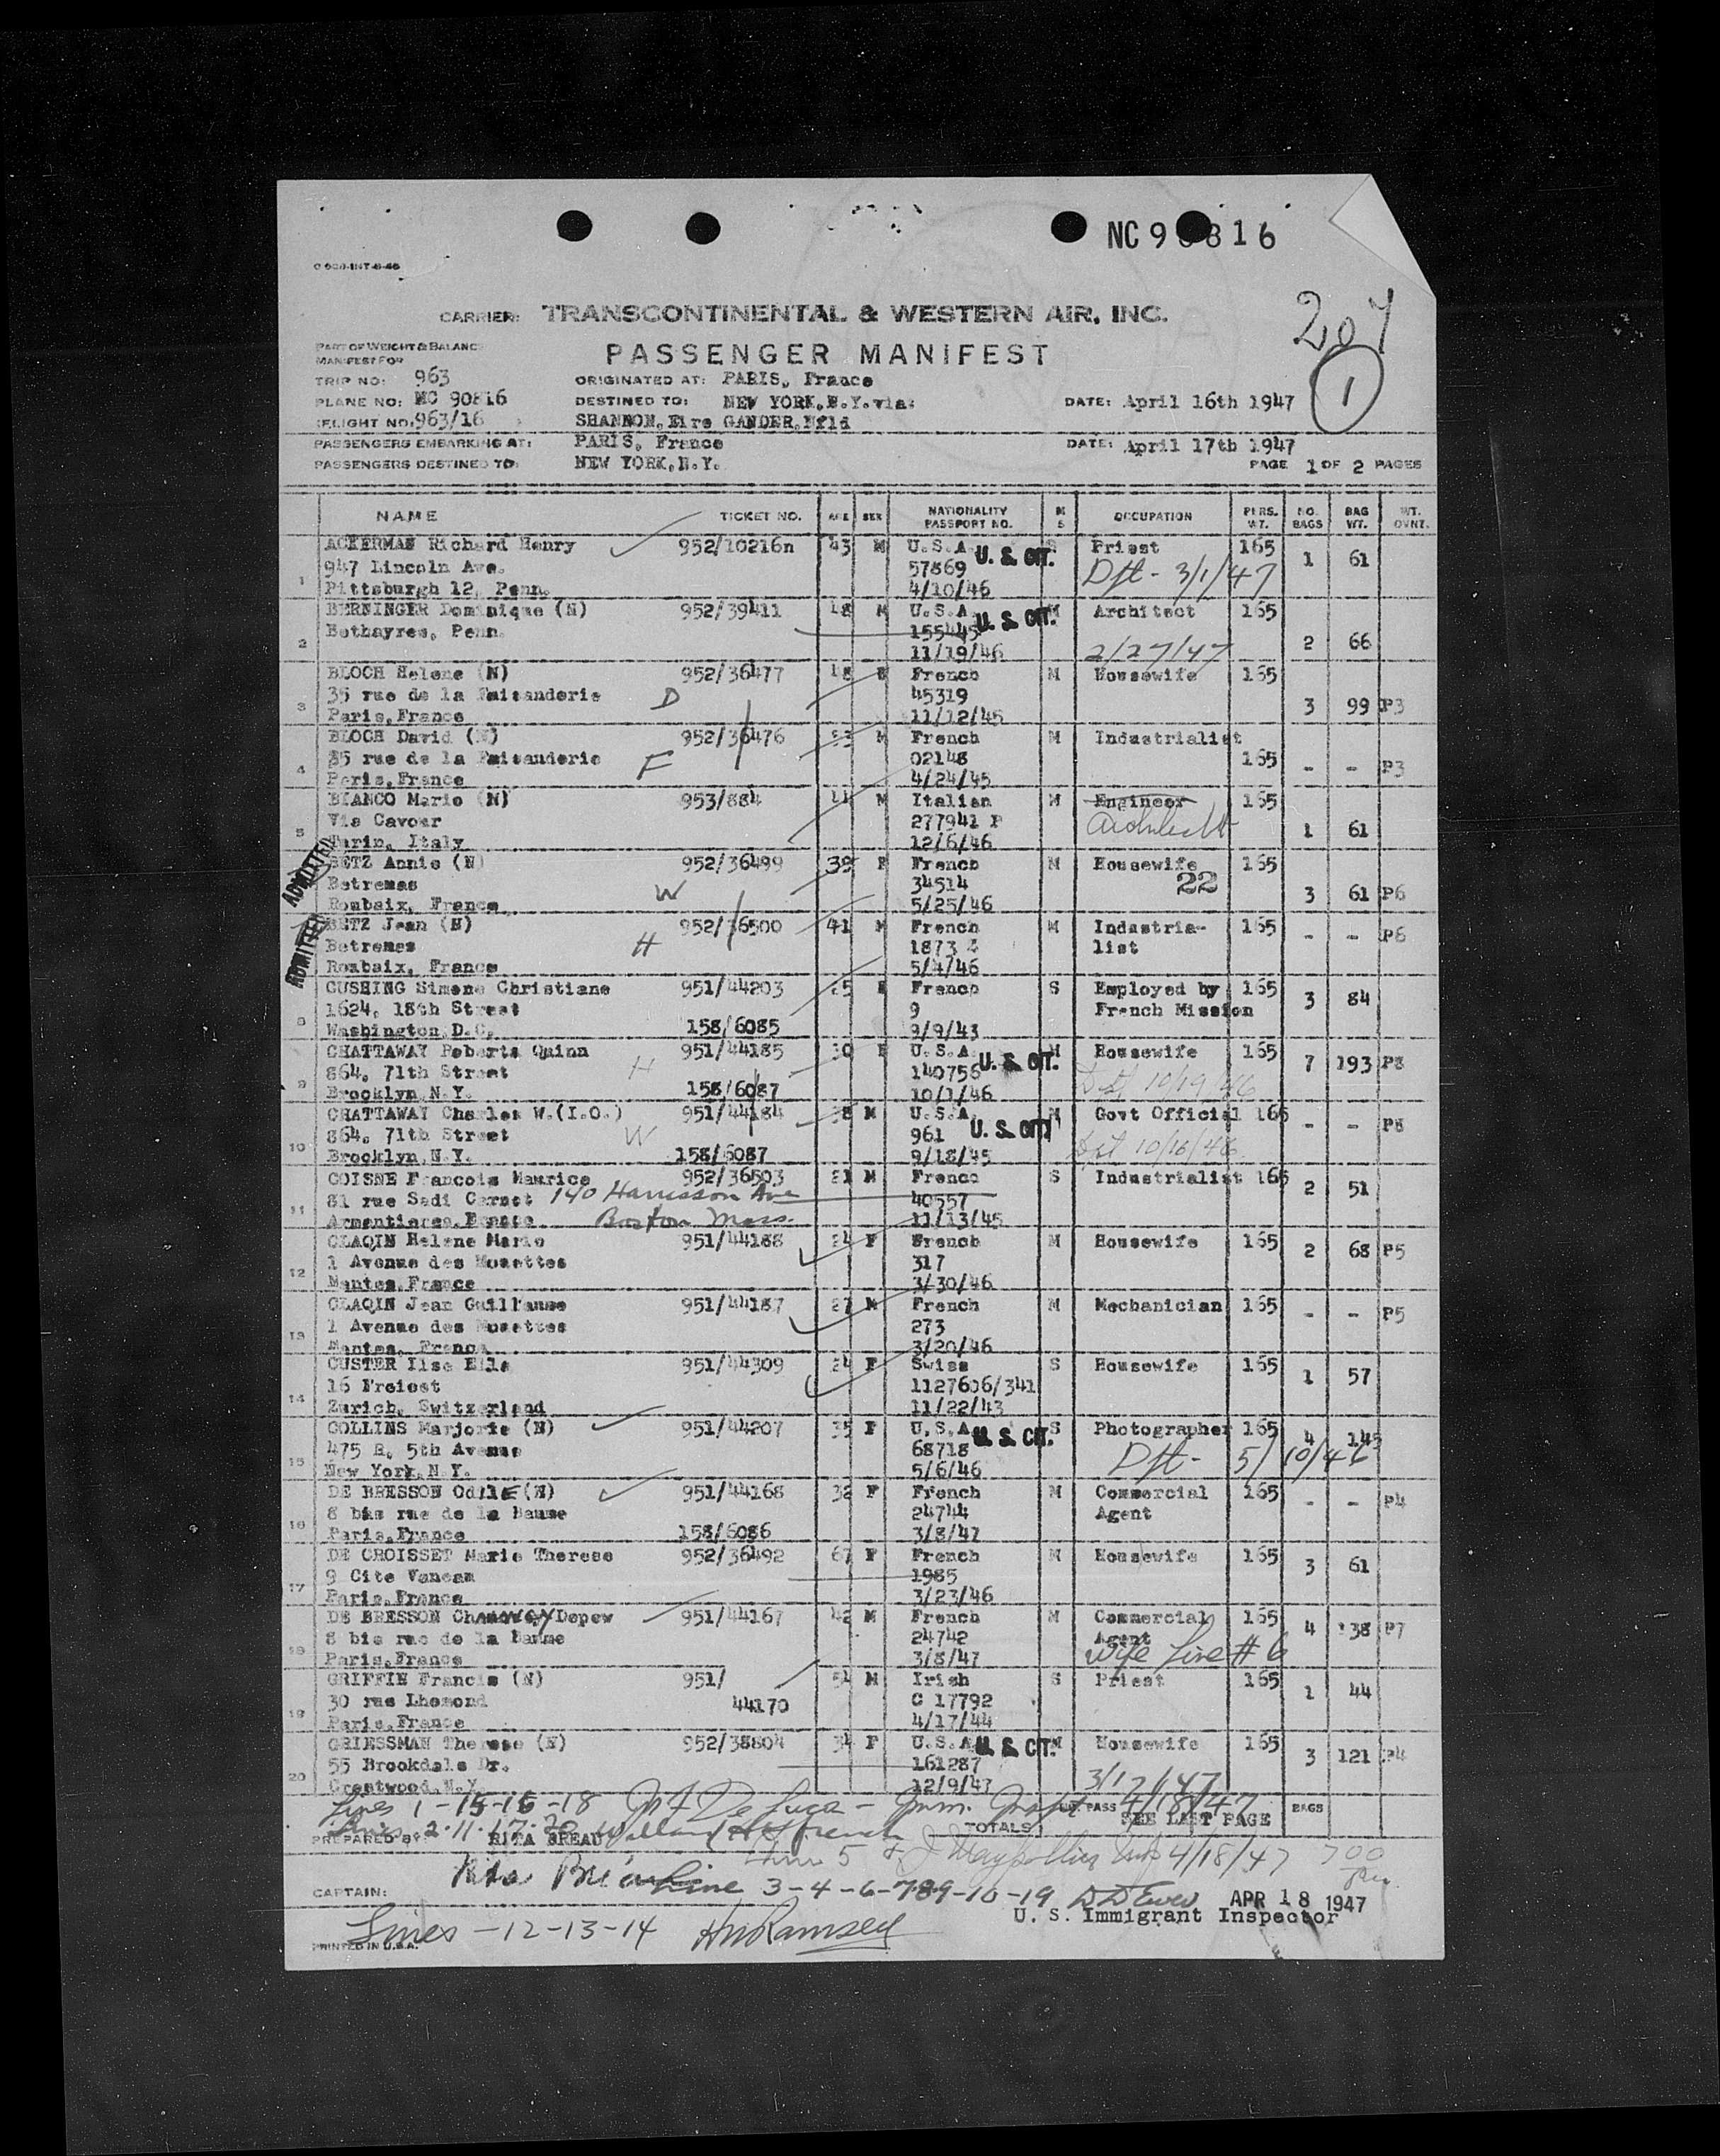 NC 90816
CARRIER: TRANSCONTINENTAL & WESTERN AIR, INC.
207
PART OF WEIGHT & BALANC
MANIFEST FOR
PASSENGER MANIFEST
1
TRIP NO: 963 ORIGINATED AT: PARIS, France
PLANE NO: NC 90816 DESTINED TO: NEW YORK,N.Y.via: DATE: April 16th 1947
FLIGHT NO: 963/16 SHANNON,Eire GANDER,Nfld
PASSENGERS EMBARKING AT: PARIS, France DATE: April 17th 1947
PASSENGERS DESTINED TO: NEW YORK,N.Y. PAGE 1 OF 2 PAGES
NAME TICKET NO. AGE SEX NATIONALITY PASSPORT NO. M S OCCUPATION PERS. WT. NO. BAGS BAG WT. WT. OVNT.
ACKERMAN Richard Henry 952/10216n 43 M U.S.A. U. S. CIT. S Priest 165
947 Lincoln Ave. 57869 Dft - 3/1/47 1 61
1 Pittsburgh 12, Penn. 4/10/46
BERNINGER Dominique (N) 952/39411 48 M U.S.A. U. S. CIT. M Architect 165
Bethayres, Penn. 155445
2 11/19/46 2/27/47 2 66
BLOCH Helene (N) 952/36477 48 F French M Housewife 165
35 rue de la Faisanderie D 45319
3 Paris,France 11/12/45 3 99 P3
BLOCH David (N) 952/36476 53 M French M Industrialist
35 rue de la Faisanderie F 02148 165
4 Paris,France 4/24/45 - - P3
BIANCO Mario (N) 953/884 44 M Italian M Engineer 165
Via Cavour 277941 P Architect
5 Turin, Italy 12/6/46 1 61
ADMITTED
BETZ Annie (N) 952/36499 39 F French M Housewife 165
Betremas W 34514 22
Roubaix, France 5/25/46 3 61 P6
ADMITTED
BETZ Jean (N) 952/36500 41 M French M Industria- 165
Betremes H 1873 list - - P6
Roubaix, France 5/4/46
CUSHING Simone Christiane 951/44203 25 F French S Employed by 165
1624, 18th Street 9 French Mission 3 84
8 Washington,D.C. 158/6085 9/9/43
CHATTAWAY Roberta Quinn 951/44185 30 F U.S.A. U. S. CIT. M Housewife 165
864, 71th Street H 140756 7 193 P8
9 Brooklyn,N.Y. 158/6087 10/1/46 Dft 10/19/46
CHATTAWAY Charles W.(I.O.) 951/44184 38 M U.S.A. M Govt Official 165
864, 71th Street W 961 U. S. CIT - - P8
10 Brooklyn,N.Y. 158/6087 9/18/45 Dft 10/16/46
COISNE Francois Maurice 952/36503 21 M French S Industrialist 165
81 rue Sadi Carnot 140 Harrisson Ave 40557 2 51
11 Armentieres,France Boston Mass. 11/13/45
CLAQIN Helene Marie 951/44188 24 F French M Housewife 165
1 Avenue des Musettes 317 2 68 P5
12 Nantes,France 3/30/46
CLAQIN Jean Guillaume 951/44187 27 M French M Mechanician 165
1 Avenue des Musettes 273 - - P5
13 Nantes, France 3/20/46
CUSTER Ilse Elle 951/44309 24 F Swiss S Housewife 165
16 Freiest 1127606/341 1 57
14 Zurich, Switzerland 11/22/43
COLLINS Marjorie (N) 951/44207 35 F U.S.A. U. S. CIT. S Photographer 165
475 E, 5th Avenue 68718 4 145
15 New York,N.Y. 5/6/46 Dft - 5/10/46
DE BRESSON Odile (N) 951/44168 32 F French M Commercial 165
8 bis rue de la Baume 24744 Agent - - P4
16 Paris,France 158/6086 3/8/47
DE CROISSET Marie Therese 952/36492 67 F French M Housewife 165
9 Cite Vaneau 1985 3 61
17 Paris,France 3/23/46
DE BRESSON Chauncey Depew 951/44167 42 M French M Commercial 165
8 bis rue de la Baume 24742 Agent 4 138 P7
18 Paris,France 3/8/47 wife Line # 6
GRIFFIN Francis (N) 951/ 54 M Irish S Priest 165
30 rue Lhomond 44170 C 17792 1 44
19 Paris,France 4/17/44
GRIESSMAN Therese (N) 952/38804 34 F U.S.A. U. S. CIT. M Housewife 165
55 Brookdale Dr. 161287 3 121 P4
20 Crestwood,N.Y. 12/9/47 3/12/47
Lines 1-15-16-18 De Luca - Imm. Inspt 4/18/47 PASS BAGS
Lines 2-11-17-20 French TOTALS SEE LAST PAGE
PREPARED BY: RITA BREAU
Line 5 4/18/47 700
Rita Line 3-4-6-7 8 9-10-19 APR 18 1947
CAPTAIN: U. S. Immigrant Inspector
Lines -12-13-14 HW Ramsell
PRINTED IN U.S.A.